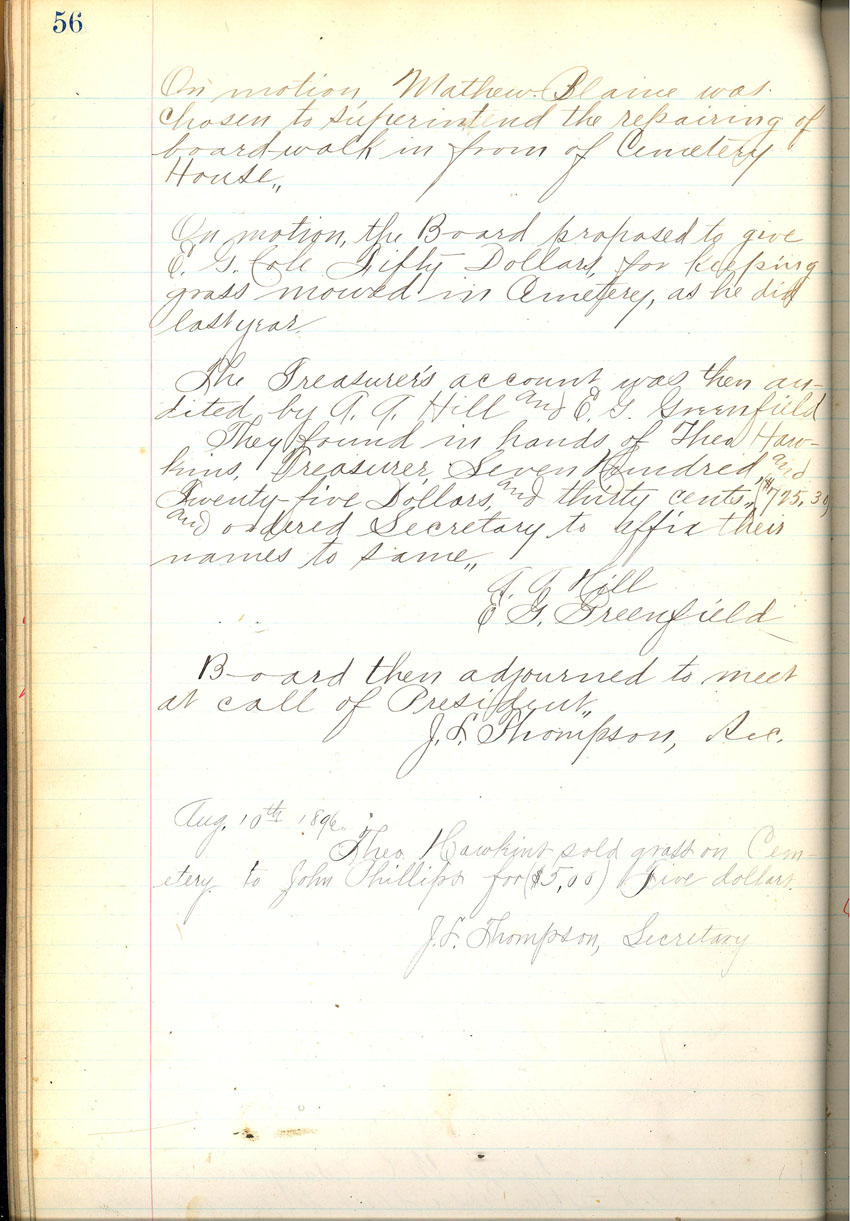 56
On motion, Mathew Blaine was
chosen to superintend the repairing of
board-walk in from of Cemetery
House,,
On motion, the Board proposed to give
E. G. Cole Fifty Dollars, for keeping
grass mowed in Cemetery, as he did
last year
The Treasurer's account was then au-
dited by A. A. Hill and E. G. Greenfield
They found in hands of Theo Haw-
kins, Treasurer, Seven Hundred, and
Twenty-five Dollars, and thirty cents,, ($725.30)
and ordered Secretary to affix their
names to same,,
A. A. Hill
E. G. Greenfield
Board then adjourned to meet
at call of President,,
J. F. Thompson, Sec.
Aug. 10th 1896.
Theo. Hawkins sold grass on Cem-
etery to John Phillips for ($5,00) Five dollars.
J. F. Thompson, Secretary